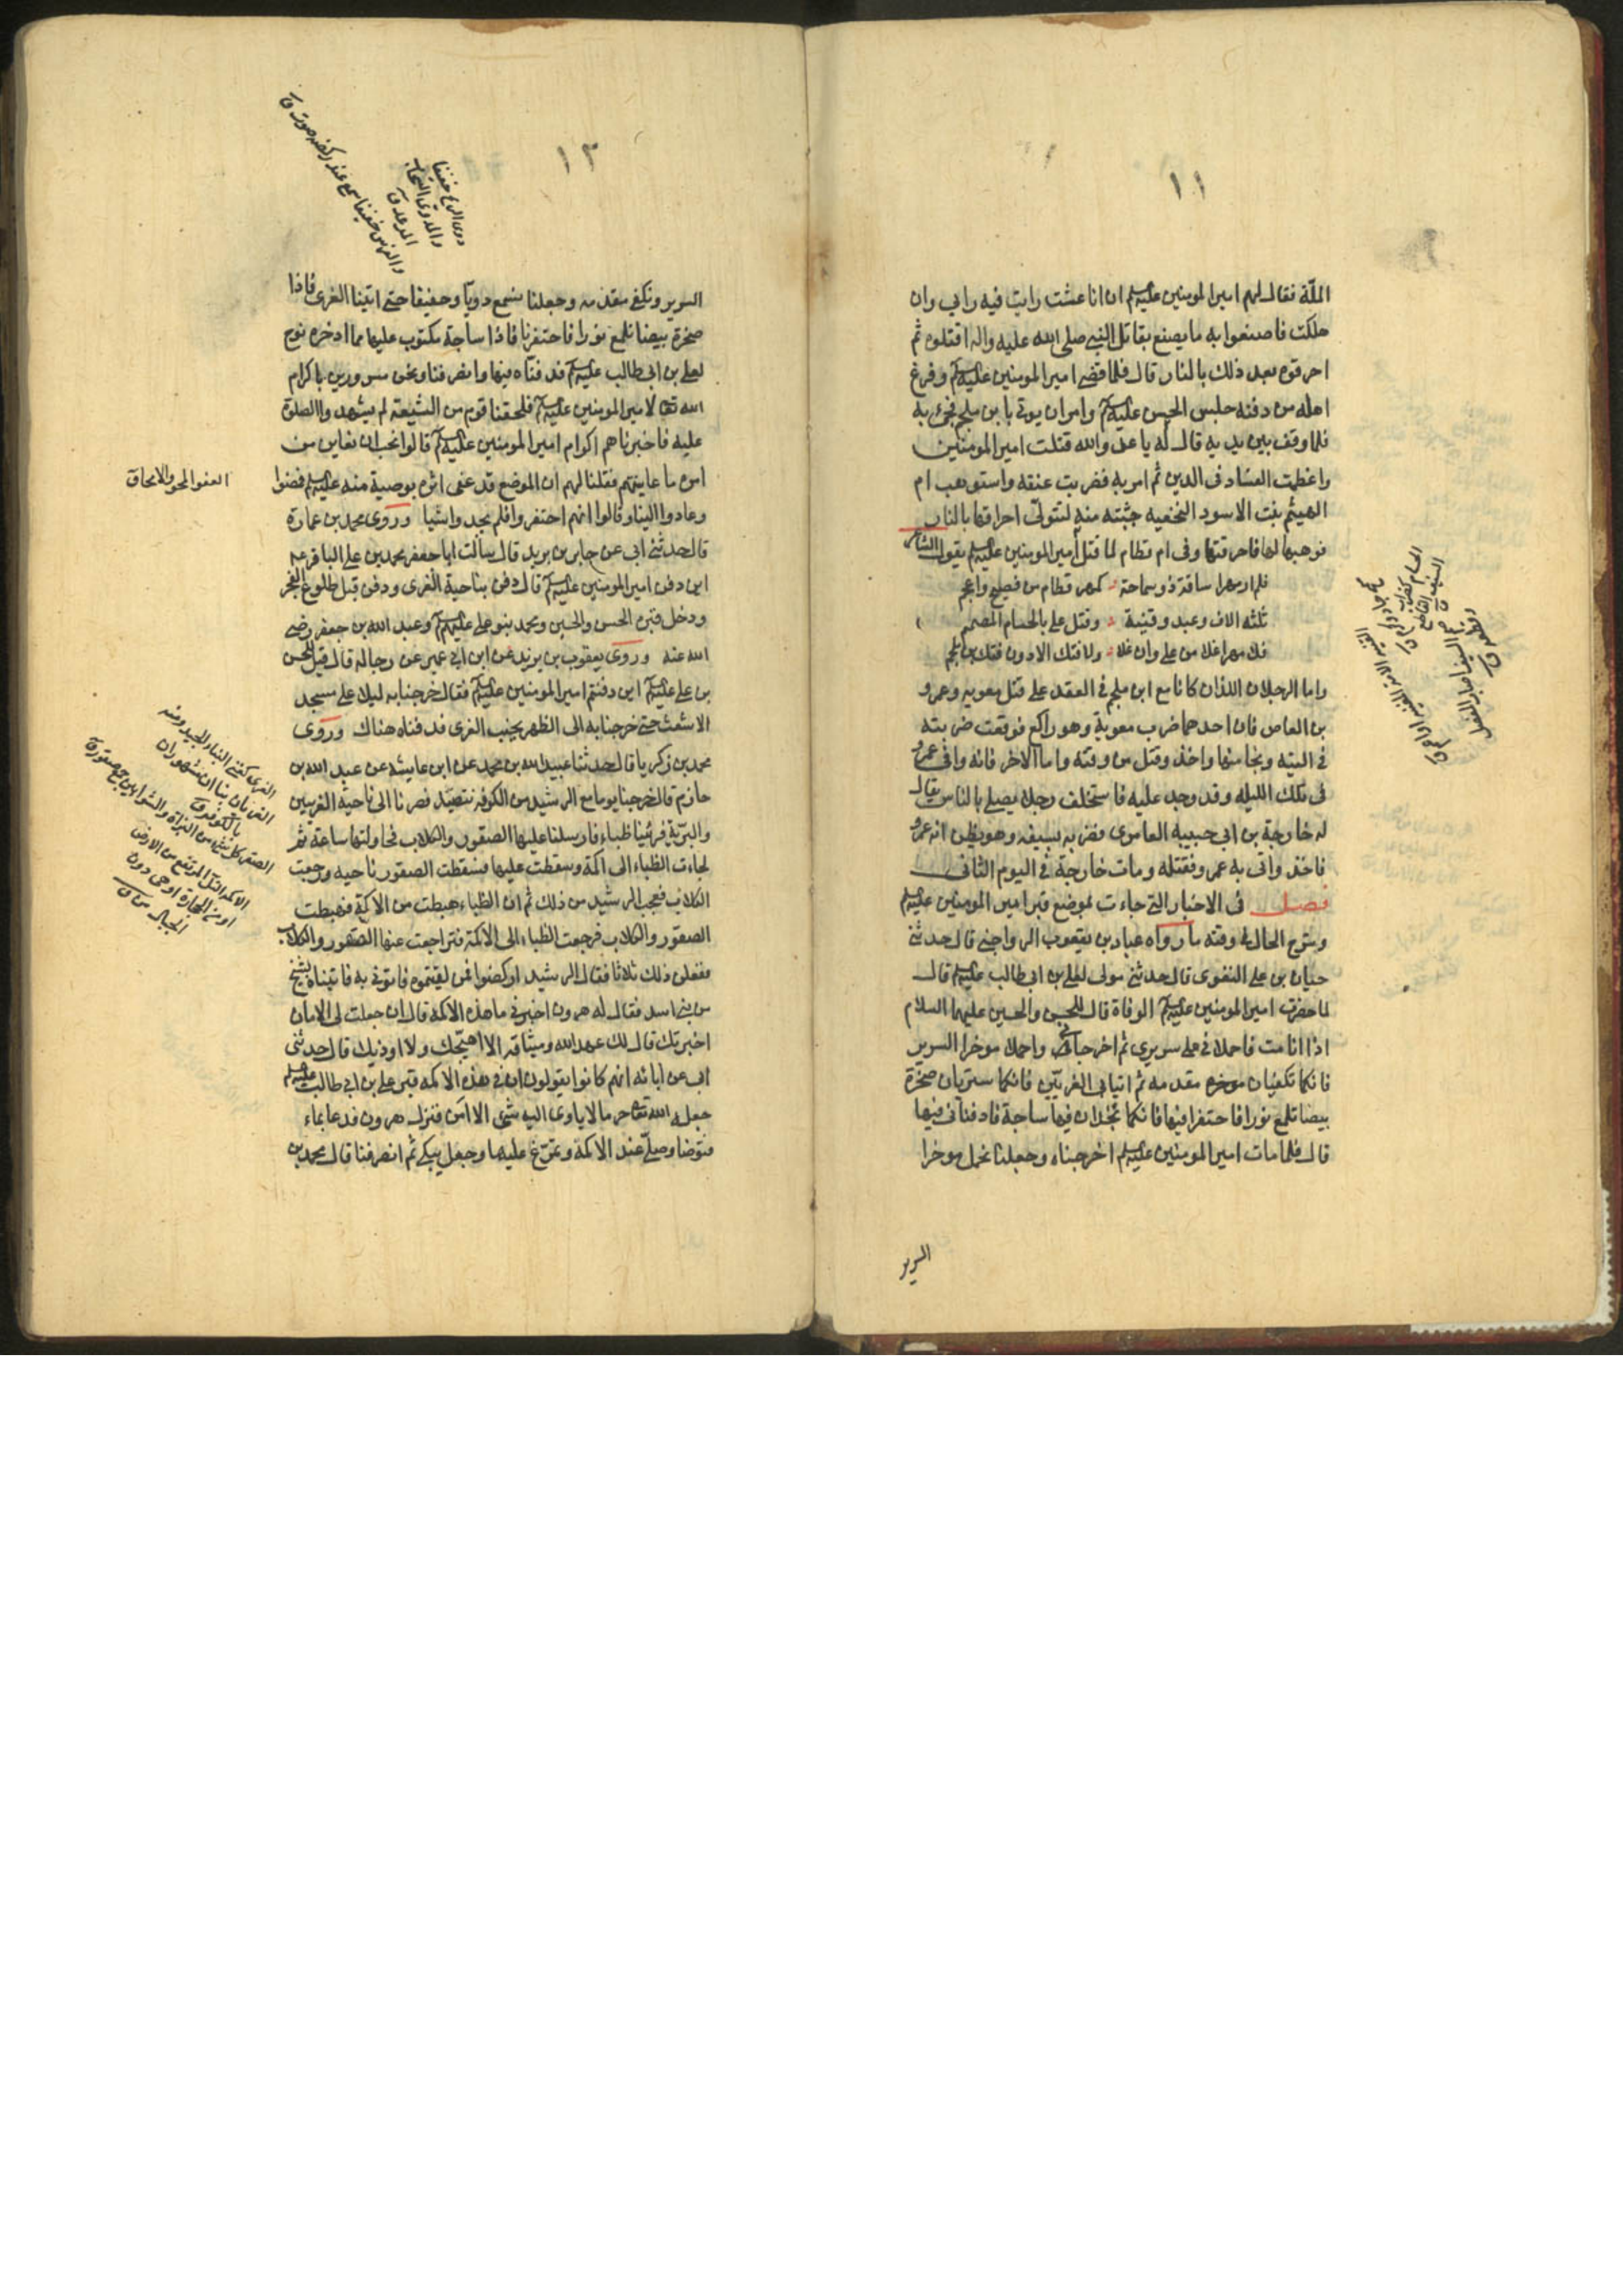 ١١
الملّة فقال لهم امير المومنين عليه السلم ان انا عشت رايت فيه رايى وان
هلكت فاصنعوا به ما يصنع بقاتل النبي صلى الله عليه واله اقتلوه ثم
احرقوه بعد ذلك بالنار قال فلما قضى امير المومنين عليه السلم وفرغ
اهله من دفنه جلس الحسن عليه السلم وامر ان يوتى بابن ملجم فجئ به
فلما وقف بين يديه قال له يا عدو الله قتلت امير المومنين
واعظمت الفساد فى الدين ثم امر به فضربت عنقه واستوهب ام
الهيثم بنت الاسود النخعيه جثته منه لتتولّى احراقها بالنار
فوهبها لها فاحرقتها وفى ام قطام لما قتل امير المومنين عليه السلم يقول الشاعر
فلم ار مهرا ساقه ذو سماحة كمهر قطام من فصيح واعجم
ثلثه الاف وعبد وقنية وقتل على بالحسام المصمم
فلا مهر اغلا من على وان غلا ولا فتك الا دون فتك بن ملجم
واما الرجلان اللذان كانا مع ابن ملجم فى العقد على قتل معويه وعمرو
بن العاص فان احدهما ضرب معوية وهو راكع فوقعت ضربته
فى اليته ونجا منها واخذ وقتل من وقته واما الاخر فانه وافى عمرو
فى تلك الليله وقد وجد عليه فاستخلف رجلا يصلى بالناس يقال
له خارجة بن ابى حبيبه العامرى فضربه بسيفه وهو يظن انه عمرو
فاخذ واتى به عمرو فقتله ومات خارجة فى اليوم الثانى
فصل فى الاخبار التى جاءت بموضع قبر امير المومنين عليه السلم
وشرح الحال فى دفنه ما رواه عباد بن يعقوب الرواجنى قال حدثنى
حيان بن على العنزى قال حدثنى مولى لعلى بن ابى طالب عليه السلم قال
لما حضرت امير المومنين عليه السلم الوفاة قال للحسن والحسين عليهما السلام
اذا انا مت فاحملانى على سريرى ثم اخرجانى واحملا موخر السرير
فانكما تكفيان موخره مقدمه ثم اتيا بى الغريّين فانكما ستريان صخرة
بيضا تلمع نورا فاحتفرا فيها فانكما تجدان فيها ساجة فادفنانى فيها
قال فلما مات امير المومنين عليه السلم اخرجناه وجعلنا نحمل موخر
السرير
١٢
دوى الريح حفيفها
السرير ونكفى مقدمه وجعلنا نسمع دويّا وحفيفا حتى اتينا الغرى فاذا
صخرة بيضا تلمع نورا فاحتفرنا فاذا ساجة مكتوب عليها مما ادخره نوح
لعلى بن ابى طالب عليه السلم فدفنّاه فيها وانصرفنا ونحن مسرورين باكرام
الله تعا لامير المومنين عليه السلم فلحقنا قوم من الشيعة لم يشهدوا الصلوة
عليه فاخبرناهم اكرام امير المومنين عليه السلم قالوا نحب ان نعاين من
امره ما عاينتم فقلنا لهم ان الموضع قد عفى اثره بوصية منه عليه السلم فمضوا
العفو المحو والامحاق
وعادوا الينا وقالوا انهم احتفروا فلم يجدوا شيا وروى محمد بن عمارة
قال حدثنى ابى عن جابر بن يزيد قال سالت ابا جعفر محمد بن على الباقر ع
اين دفن امير المومنين عليه السلم قال دفن بناحية الغرى ودفن قبل طلوع الفجر
ودخل قبره الحسن والحسين ومحمد بنو على عليهم السلم وعبد الله بن جعفر رضى
الله عنه وروى يعقوب بن يزيد عن ابن ابى عمير عن رجاله قال قيل للحسن
بن على عليه السلم اين دفنتم امير المومنين عليه السلم فقال خرجنا به ليلا على مسجد
الاشعث حتى خرجنا به الى الظهر بجنب الغرى فدفناه هناك وروى
محمد بن زكريا قال حدثنا عبيد الله بن محمد عن ابن عايشه عن عبد الله بن
حازم قال خرجنا يوما مع الرشيد من الكوفه نتصيّد فصرنا الى ناحية الغريين
والبرّية فرئينا ظباء فارسلنا عليها الصقور والكلاب فحاولتها ساعة ثم
لجاءت الظباء الى اكمة وسقطت عليها فسقطت الصقور ناحيه ورجعت
الكلاب فعجب الرشيد من ذلك ثم ان الظباء هبطت من الاكمة فهبطت
الصقور والكلاب فرجعت الظباء الى الاكمة فتراجعت عنها الصقور والكلاب
ففعلن ذلك ثلاثا فقال الرشيد اركضوا فمن لقيتموه فاتونى به فاتيناه بشيخ
من بنى اسد فقال له هرون اخبرنى ما هذه الاكمه قال ان جعلت لى الامان
اخبرتك قال لك عهد الله وميثاقه الا اهيّجك ولا اوذيك قال حدثنى
ابى عن ابائه انهم كانوا يقولون ان فى هذه الاكمه قبر على بن ابى طالب عليه السلم
جعله الله تعا حرما لا ياوى اليه شى الا امن فنزل هرون فدعا بماء
فتوضا وصلّى عند الاكمة وتمرّغ عليها وجعل يبكى ثم انصرفنا قال محمد بن
الغرى كغنى البناء الجيد ومنه
الغريان بناآن مشهوران
بالكوفه ق
الصقر كل شئ من البزاة والشواهين ج صقور ق
الاكمه التل المرتفع من الارض